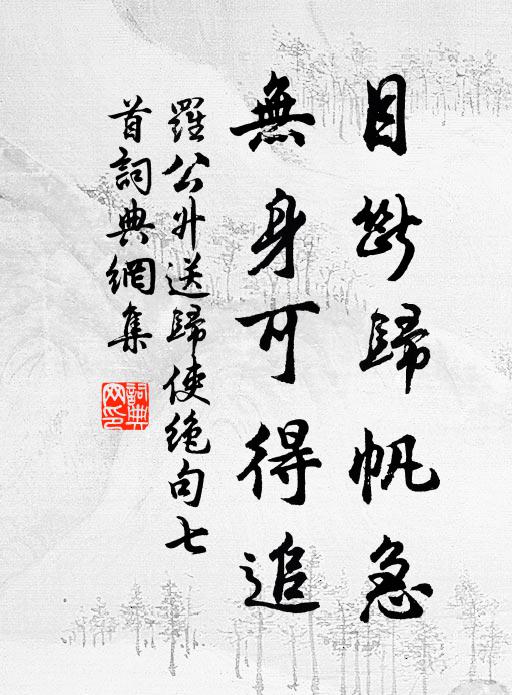 目斷歸帆急
無身可得追
羅公升送歸使絶句七
首詞典網集
詞典
网印